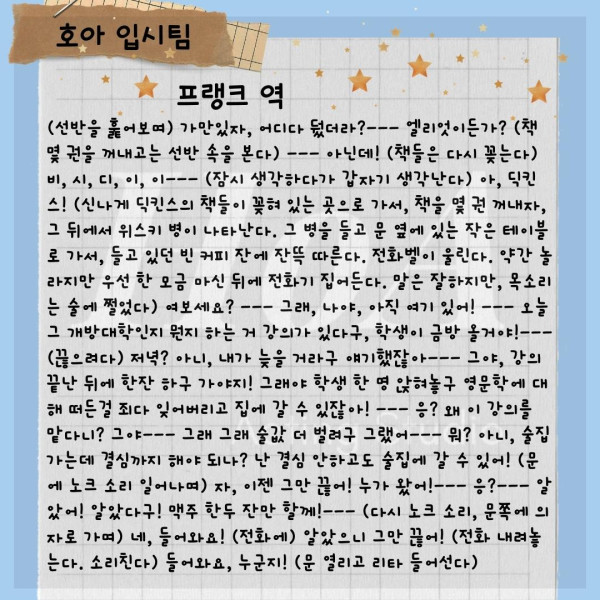 호아 입시팀
프랭크 역
(선반을 훑어보며) 가만있자, 어디다 뒀더라?--- 엘리엇이든가? (책
몇 권을 꺼내고는 선반 속을 본다) --- 아닌데! (책들은 다시 꽂는다)
비, 시, 디, 이, 이--- (잠시 생각하다가 갑자기 생각난다) 아, 딕킨
스! (신나게 딕킨스의 책들이 꽂혀 있는 곳으로 가서, 책을 몇 권 꺼내자,
그 뒤에서 위스키 병이 나타난다. 그 병을 들고 문 옆에 있는 작은 테이블
로 가서, 들고 있던 빈 커피 잔에 잔뜩 따른다. 전화벨이 울린다. 약간 놀
라지만 우선 한 모금 마신 뒤에 전화기 집어든다. 말은 잘하지만, 목소리
는 술에 쩔었다) 여보세요? --- 그래, 나야, 아직 여기 있어! --- 오늘
그 개방대학인지 뭔지 하는 거 강의가 있다구, 학생이 금방 올거야!---
(끊으려다) 저녁? 아니, 내가 늦을 거라구 얘기했잖아--- 그야, 강의
끝난 뒤에 한잔 하구 가야지! 그래야 학생 한 명 앉혀놓구 영문학에 대
해 떠든걸 죄다 잊어버리고 집에 갈 수 있잖아! --- 응? 왜 이 강의를
맡다니? 그야--- 그래 그래 술값 더 벌려구 그랬어--- 뭐? 아니, 술집
가는데 결심까지 해야 되나? 난 결심 안하고도 술집에 갈 수 있어! (문
에 노크 소리 일어나며) 자, 이젠 그만 끊어! 누가 왔어!--- 응?--- 알
았어! 알았다구! 맥주 한두 잔만 할께!--- (다시 노크 소리, 문쪽에 의
자로 가며) 네, 들어와요! (전화에) 알았으니 그만 끊어! (전화 내려놓
는다. 소리친다) 들어와요, 누군지! (문 열리고 리타 들어선다)